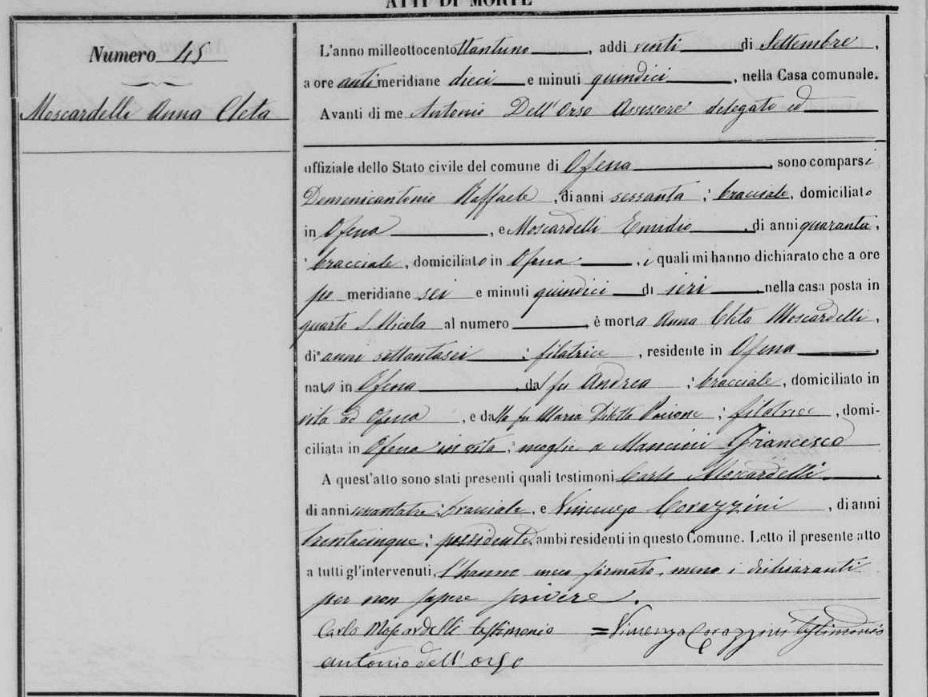 ATTI DI MORTE
Numero 45
Moscardelli Anna Cleta
L'anno milleottocentottantuno, addì venti di Settembre,
a ore antimeridiane dieci e minuti quindici, nella Casa comunale.
Avanti di me Antonio Dell'Orso Assessore delegato ed
uffiziale dello Stato civile del comune di Ofena, sono comparsi
Domenicantonio Raffaele, di anni sessanta, bracciale, domiciliato
in Ofena, e Moscardelli Emidio, di anni quaranta,
bracciale, domiciliato in Ofena, i quali mi hanno dichiarato che a ore
po meridiane sei e minuti quindici di ieri, nella casa posta in
quarto S. Nicola al numero, è morta Anna Cleta Moscardelli,
di anni settantasei, filatrice, residente in Ofena,
nata in Ofena, dal fu Andrea, bracciale, domiciliato in
vita ad Ofena, e dalla fu Maria Diletta, filatrice, domi-
ciliata in Ofena in vita, moglie a Mancini Francesco
A quest'atto sono stati presenti quali testimoni Carlo Moscardelli,
di anni, bracciale, e Vincenzo Corazzini, di anni
trentacinque, possidente, ambi residenti in questo Comune. Letto il presente atto
a tutti gl'intervenuti, l'hanno meco firmato, meno i dichiaranti
per non sapere scrivere.
Carlo Moscardelli testimonio = Vincenzo Corazzini testimonio
Antonio dell'orso